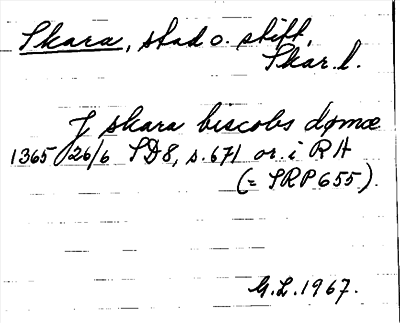 Skara, stad o. stift,
Skar. l.
J skara biscobs dømæ
1365 26/6 SD8, s. 671 or. i RA
(= SRP 655).
G.L. 1967.